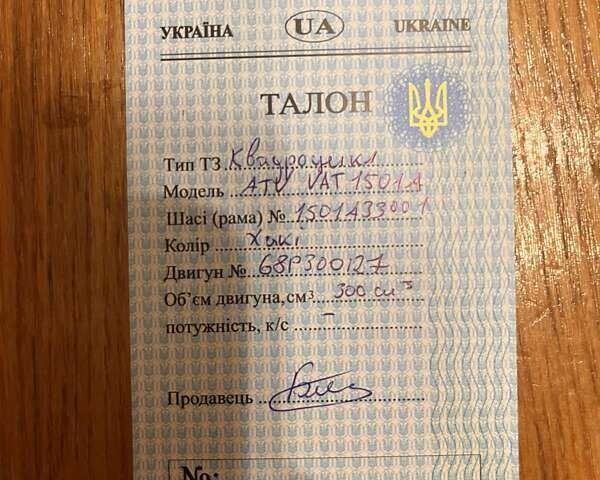 УКРАЇНА UA UKRAINE
ТАЛОН
Тип ТЗ Квадроцикл
Модель ATV VAT1501A
Шасі (рама) № 1501A33001
Колір Хакі
Двигун № 68P300127
Об'єм двигуна, см³ 300 см³
потужність, к/с –
Продавець
№: